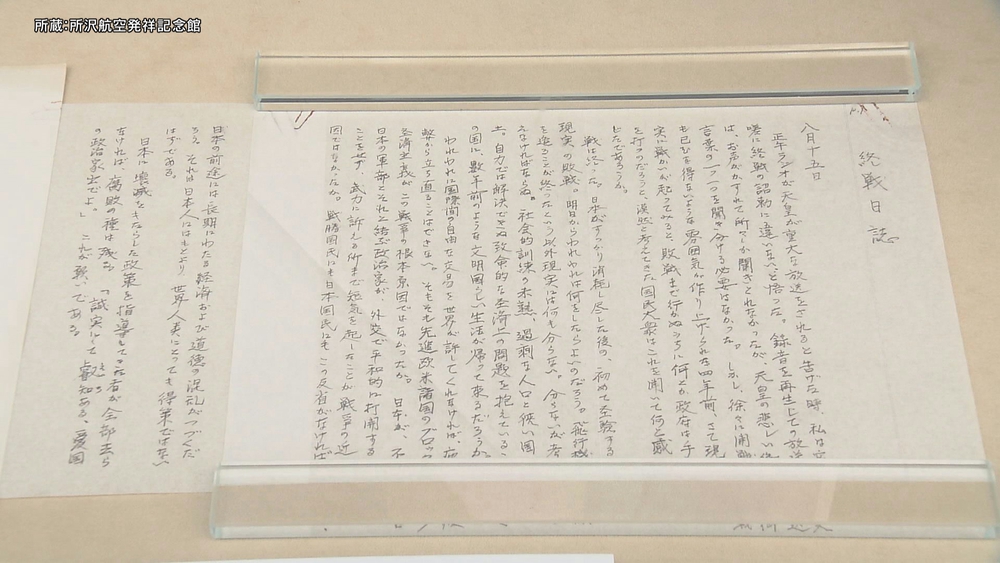 所蔵:所沢航空発祥記念館
終戦日誌
八月十五日
正午ラジオが天皇が重大な放送をされると告げた時、私は
嗟に終戦の詔勅に違いないと悟った。録音を再生しての放
は、お声がかすれて所々しか聞きとれなかったが、天皇の悲しい
言葉の一つ一つを聞き分ける必要はなかった。しかし、徐々に開
も已むを得ないような雰囲気が作り上げられた四年前、さて現
実に戦いが起ってみると、敗戦まで行かぬうちに何とか政府は手
を打つのだろうと、漠然と考えてきた国民大衆はこれを聞いて何と感
じたであろうか。
戦は終った。日本がすっかり消耗し尽した後の、初めて経験する
現実の敗戦。明日からわれわれは何をしたらよいのだろう。飛行機
を造ることが終ったという以外現実には何も分らない。分らないが考
えなければならぬ。社会的訓練の未熟、過剰な人口と狭い国
土。自力では解決できぬ致命的な経済上の問題を抱えている
の国に、数年前のような文明国らしい生活が帰って来るだろうか。
われわれに国際間の自由な交易を世界が許してくれなければ、疲
弊から立ち直ることはできない。そもそも先進欧米諸国のブロック
経済主義がこの戦争の根本原因ではなかったか。日本が、不
日本の軍部とそれと結ぶ政治家が、外交で平和的に打開する
ことをせず、武力に訴える所まで短気を起したことが戦争の近
因ではなかったか。戦勝国民にも日本国民にもこの反省がなければ
日本の前途には長期にわたる経済および道徳の混乱がつづくだ
ろう。それは日本人にはもとより世界人類にとっても得策ではない
はずである。
日本に壊滅をもたらした政策を指導して来た者が全部去ら
なければ、腐敗の種は残る。「誠実にして叡知ある、愛国
の政治家出でよ」これが願いである。